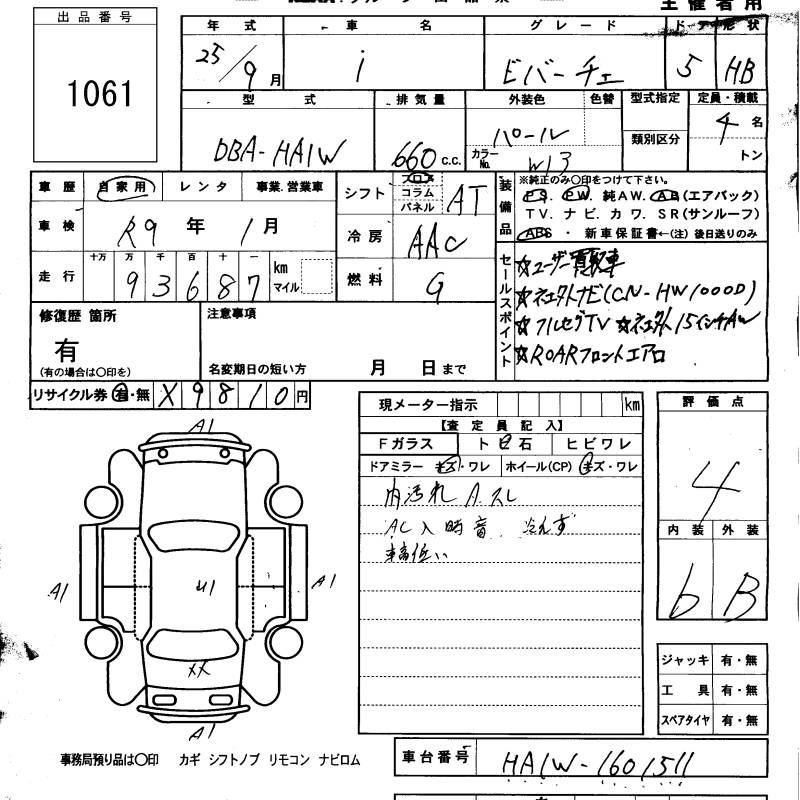 主催者用
出品番号
1061
年式 車名 グレード ドア 形状
25/9月 i ビバーチェ 5 HB
型式 排気量 外装色 色替 型式指定 定員・積載
DBA-HA1W 660c.c. パール カラーNo. W13 類別区分 4名 トン
車歴 自家用 レンタ 事業.営業車
車検 R9年1月
走行 十万 万 千 百 十 一
93687 km マイル
シフト フロア コラム パネル AT
冷房 AAC
燃料 G
装備品
※純正のみ〇印をつけて下さい。
PS. PW. 純AW. AB(エアバック)
TV. ナビ. カワ. SR(サンルーフ)
ABS ・ 新車保証書←(注) 後日送りのみ
セールスポイント
☆ユーザー買取車
☆ネエクトナビ(CN-HW1000D)
☆フルセグTV ☆ネエクト15インチAW
☆ROARフロントエアロ
修復歴 箇所
有
(有の場合は〇印を)
注意事項
名変期日の短い方 月 日まで
リサイクル券 有・無 ¥9810円
現メーター指示 km
【査定員記入】
Fガラス トビ石 ヒビワレ
ドアミラー キズ・ワレ ホイール(CP) キズ・ワレ
内汚れ A.スレ
AC入時音 冷えず
車高低い
評価点
4
内装 外装
b B
ジャッキ 有・無
工具 有・無
スペアタイヤ 有・無
A1
A1 U1 A1
XX
A1
事務局預り品は〇印 カギ シフトノブ リモコン ナビロム
車台番号 HA1W-1601511